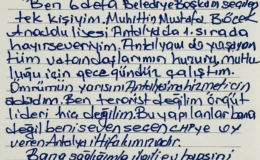 Ben 6 defa Belediye Başkanı seçilen
tek kişiyim. Muhittin Mustafa Böcek
Anadolu lisesi Antalya'da 1. sırada
hayırseveriyim. Antalyam da yaşayan
tüm vatandaşlarımın huzuru, mutlu
luğu için gece gündüz çalıştım.
Ömrümün yarısını Antalyamıza hizmet için
adadım. Ben terörist değilim örgüt
lideri hiç değilim. Bu yapılanlar bana
değil beni seven seçen CHP'ye oy
veren Antalya Halkımızadır.
Bana sağlığımla ilgili ev hapsini